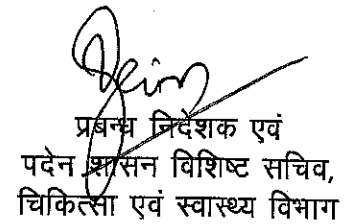 प्रबन्ध निदेशक एवं
पदेन शासन विशिष्ट सचिव,
चिकित्सा एवं स्वास्थ्य विभाग